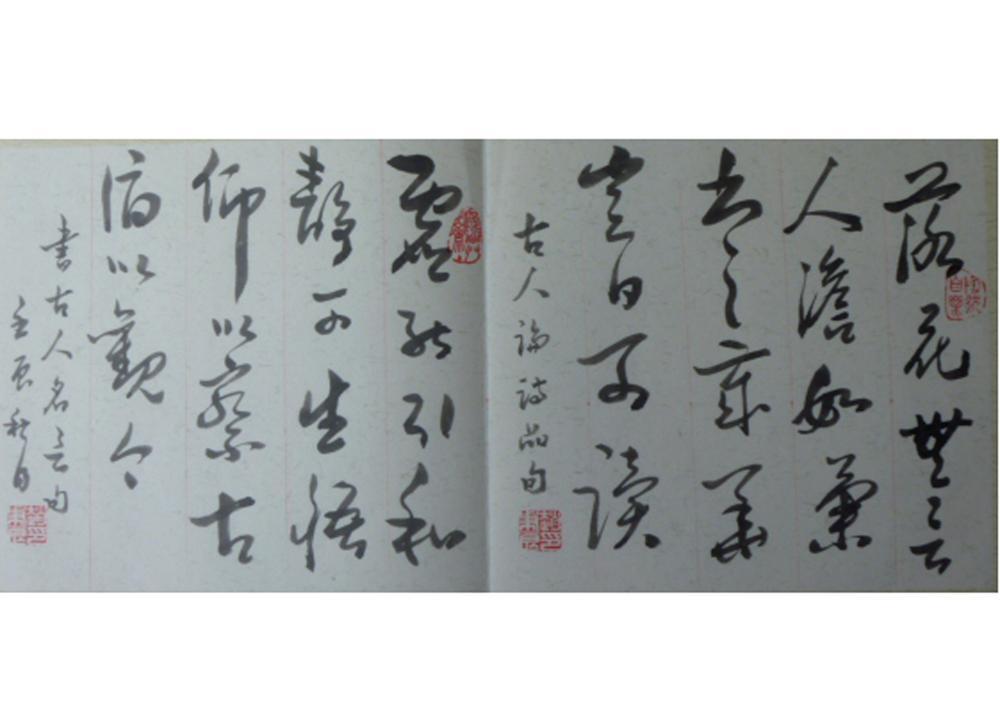 落花無言
人澹如菊
書之歲華
其曰可讀
古人論詩品句
虚能引和
静可生悟
仰以察古
俯以觀今
書古人名言句
壬辰秋日